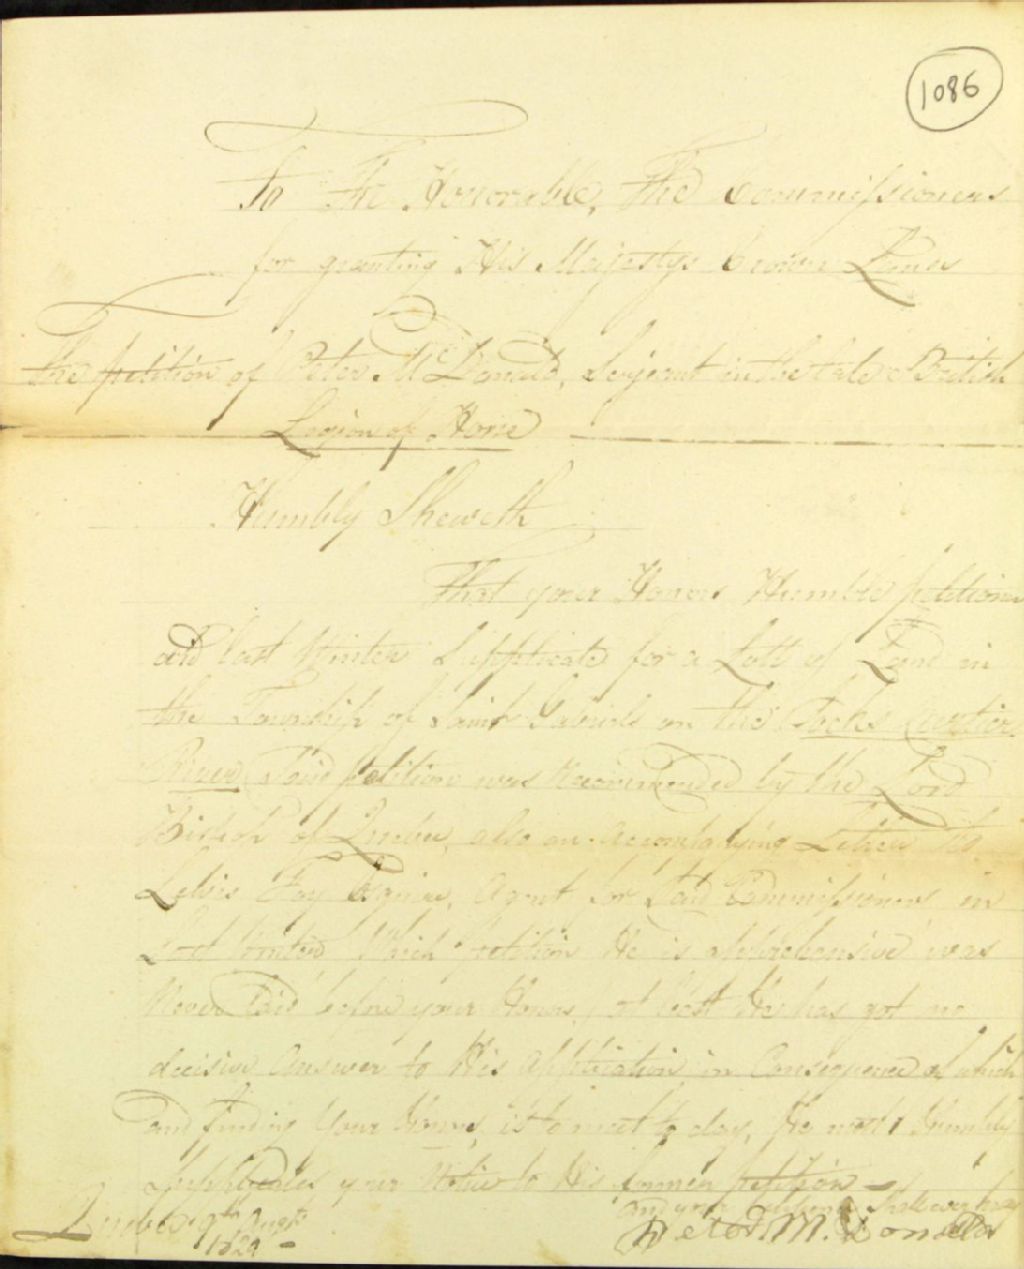 1086
To The Honorable, The Commissioners
for granting His Majestys Crown Lands
The petition of Peter McDonald, Serjeant in the late British
Legion of Horse
Humbly Sheweth
That your Honors Humble petitioner
did last Winter Supplicate for a Lott of Land in
the Township of Saint Gabriels on the Jacks Cartier
River, Said petition was Recommended by the Lord
Bishop of Quebec, also an accompanying Letter to
Lewis Foy Esquire, Agent for Said Commissioners, in
Last Winter Which petition He is apprehensive was
Never Laid before your Honors, at least He has got no
decisive Answer to His application in Consequence of which
and finding Your Honors, is to meet to day, He most Humbly
Supplicates your Notice to His former petition
and your petitioner Shall ever pray
Quebec 9th Augst
Peter McDonald